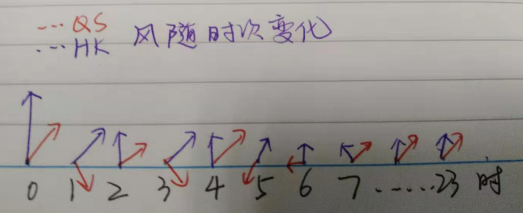 --- QS
--- HK 风随时次变化
0 1 2 3 4 5 6 7 ......23 时